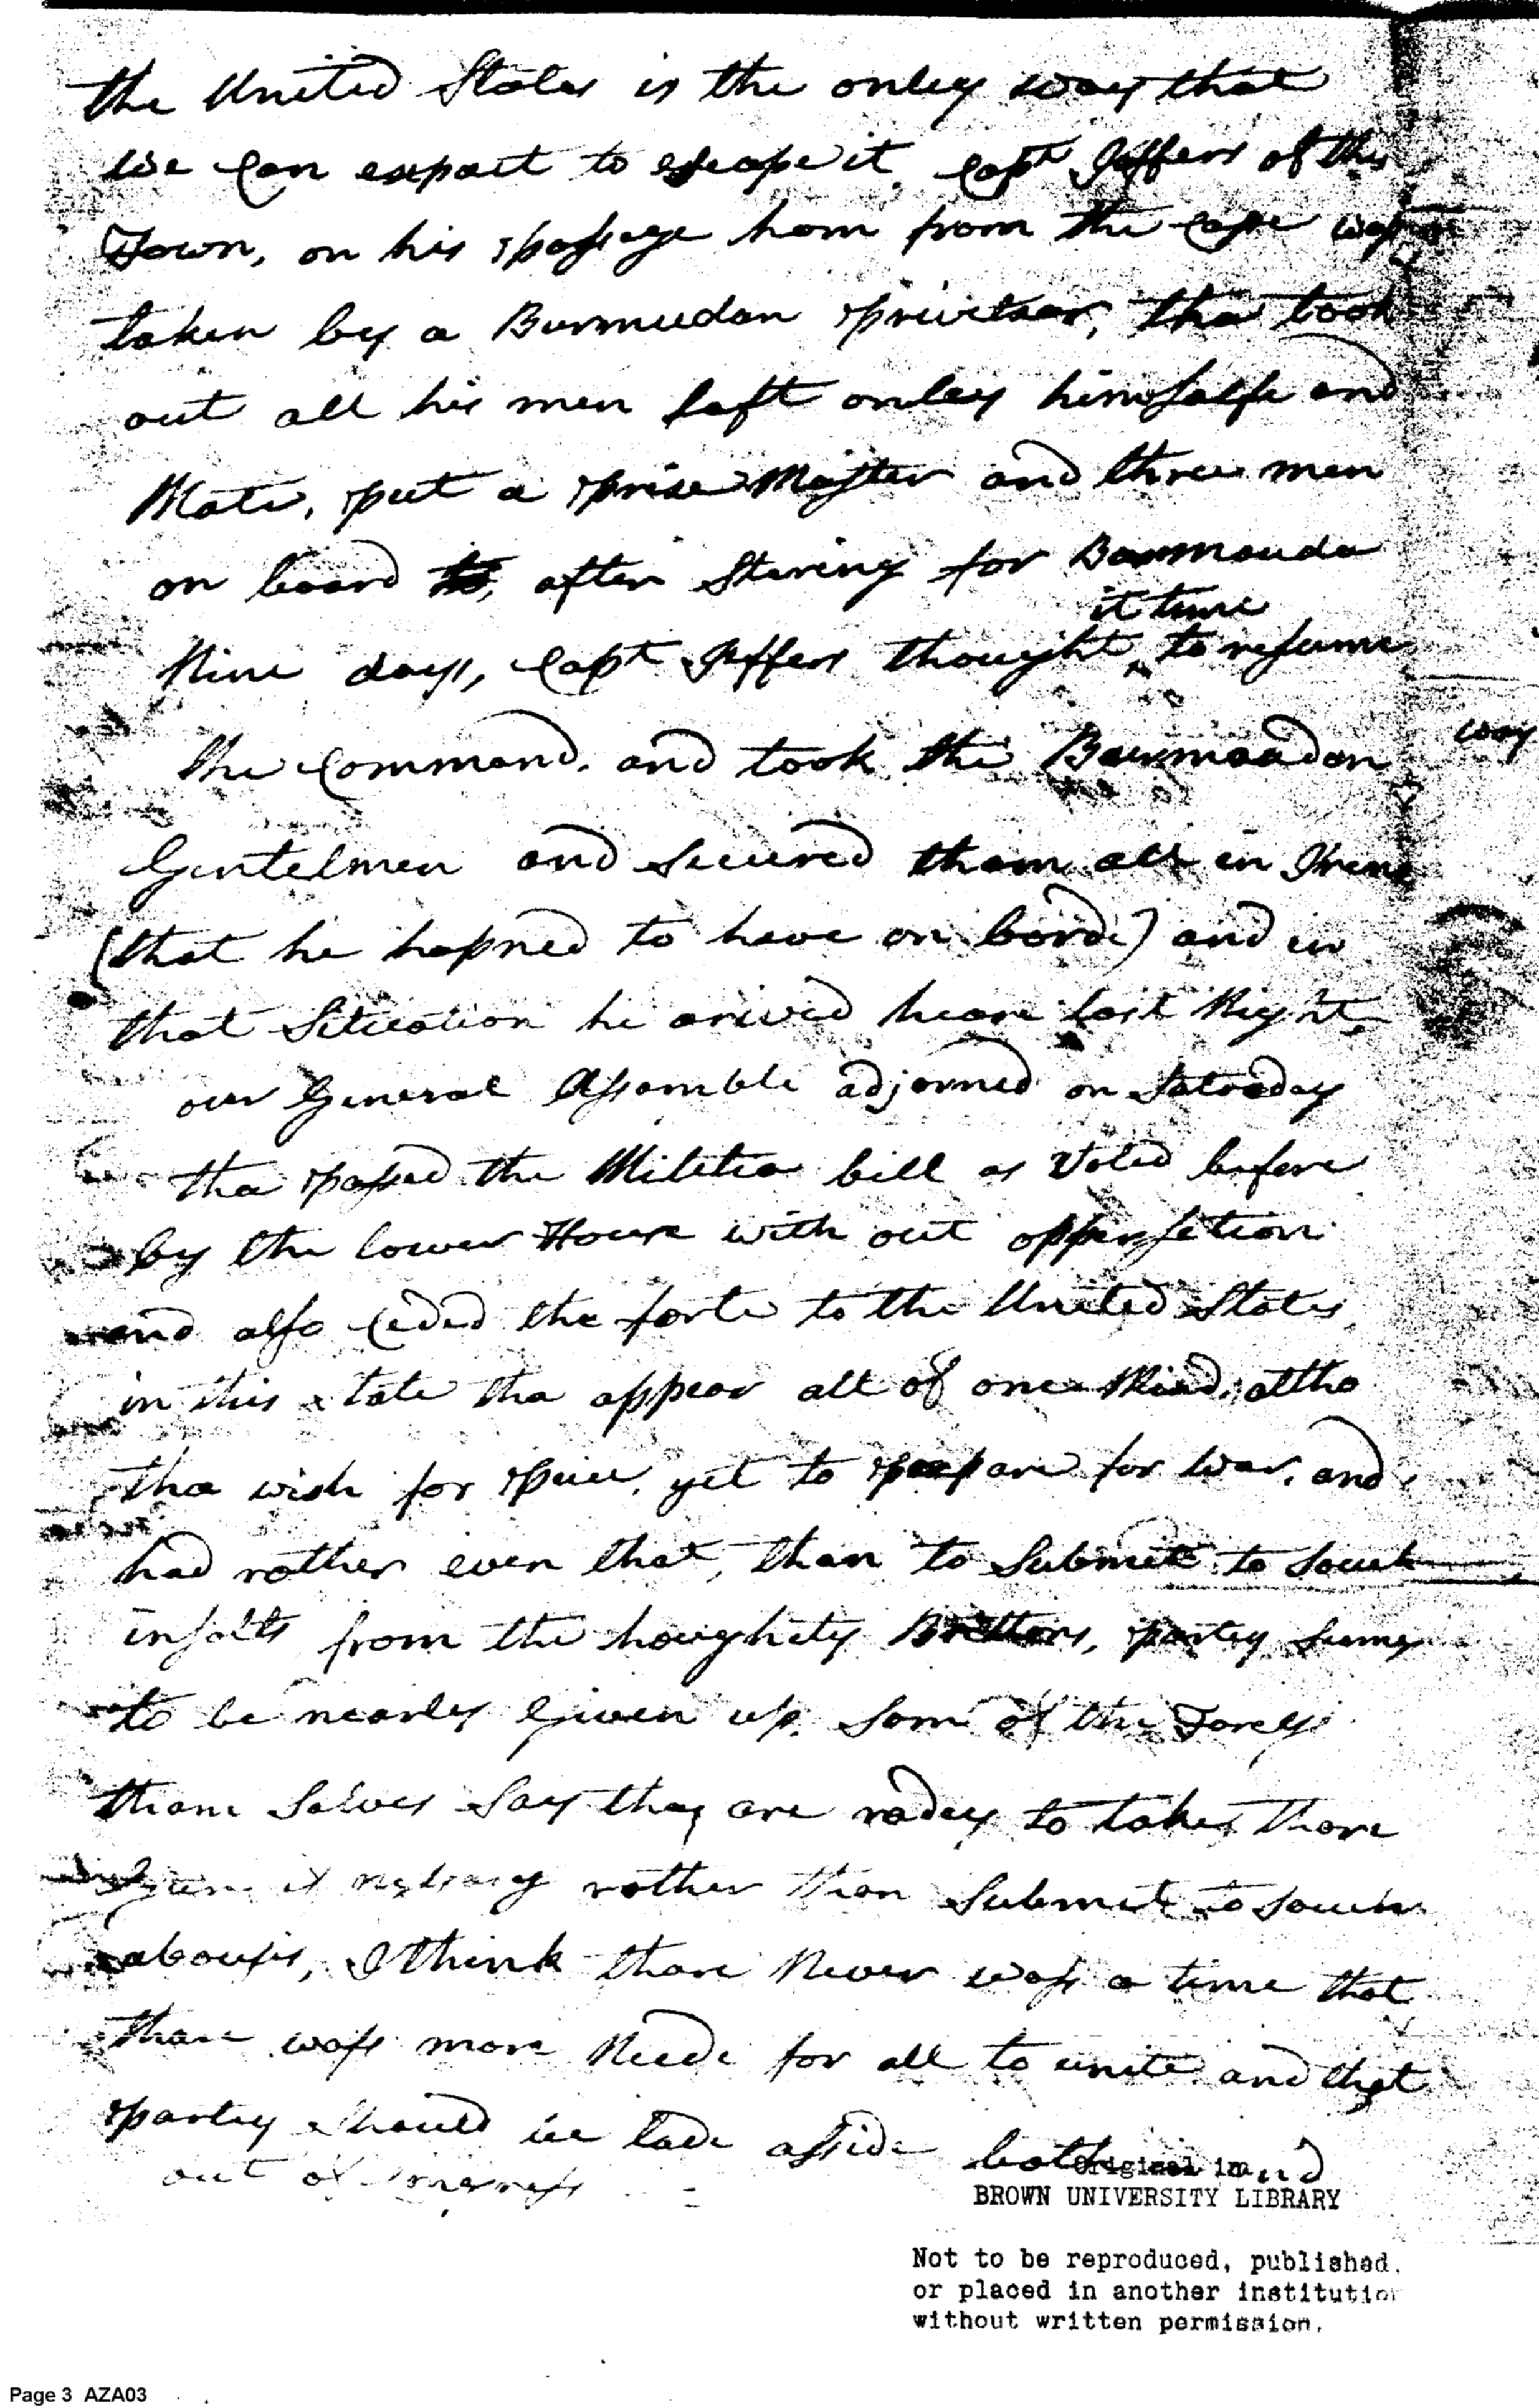 the United States is the onley way that
we Can expect to escape it, Capt Jeffers of this
Town, on his passage hom from the Cape was
taken by a Burmudan priveteer, tha took
out all his men left onley himselfe and
Mate, put a prise Master and three men
on board after Stering for Barmouda
it time
Nine days, Capt Jeffers thought to resume
the Command, and took the Bawmoadan
way
Gentelmen and Secured them all in Irens
(that he hapned to have on bord) and in
that Situation he arived heare last Night
our General Assamble adjorned on Satorday
tha passed the Militia bill as Voted before
by the lower House with out oppersetion
and also Ceded the forte to the United States
in this state tha appear all of one Mind, altho
tha wish for peice, yet to prepare for War, and
had rather even that, than to Submit to Souch
insolts from the houghety Brittons, partey Seemes
to be nearley Given up, Som of the Toreys
tham Selves Say thay are redey to take thare
rather than Submit to Souch
abouses, I think thare Never wass a time that
thare wass more Neede for all to unite and that
partey Should be lade asside both and
out of
Original in
BROWN UNIVERSITY LIBRARY
Not to be reproduced, published,
or placed in another institution
without written permission.
Page 3 AZA03